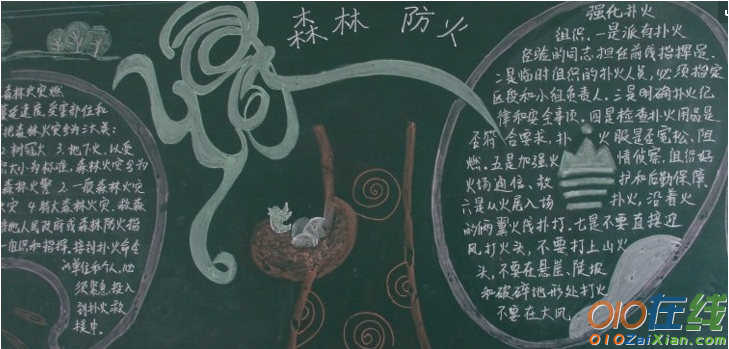 森林 防火
森林火灾燃
蔓延速度,受害部位和
把森林火灾分为三大类:
2.树冠火 3.地下火,以受
积大小为标准,森林火灾分为
森林火警 2.一般森林火灾
火灾 4.特大森林火灾,救森
当地人民政府或森林防火指
组织和指挥,接到扑火命令
的单位和个人,必
须紧急投入
到扑火救
援中。
强化扑火
组织。一是派有扑火
经验的同志担任前线指挥员。
二是临时组织的扑火人员,必须指定
区段和小组负责人。三是明确扑火纪
律和安全事项。四是检查扑火用品是
否符合要求,扑火服是否宽松、阻
燃。五是加强火情侦察,组织好
火场通信、救护和后勤保障。
六是从火尾入场扑火,沿着火
的两翼火线扑打。七是不要直接迎
风打火头,不要打上山火
头,不要在悬崖、陡坡
和破碎地形处打火
不要在大风
010在线
010ZaiXian.com